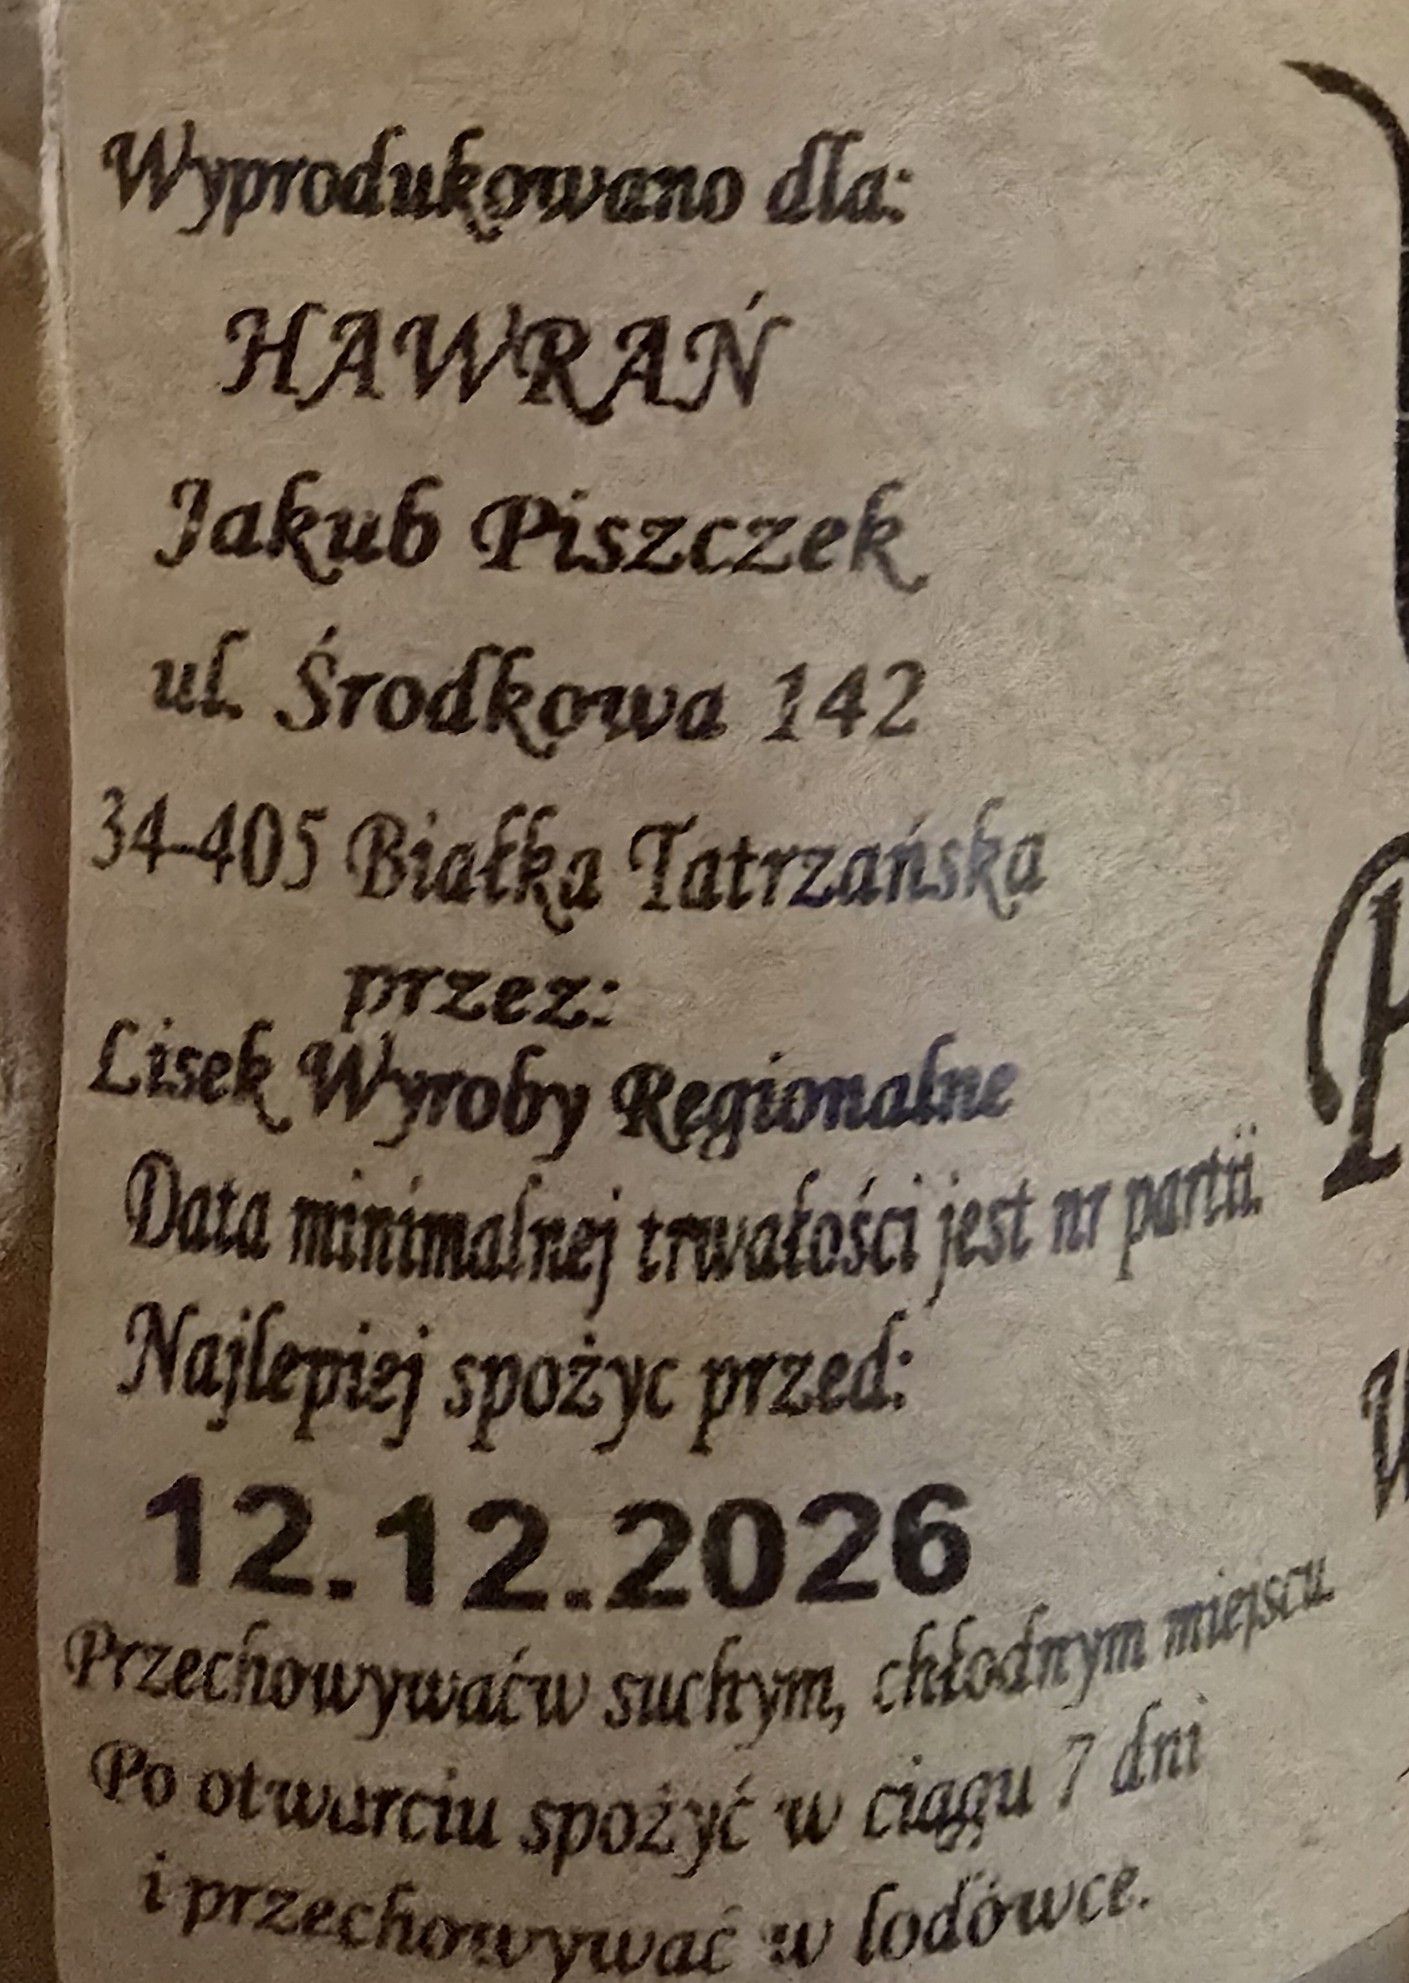 Wyprodukowano dla:
HAWRAŃ
Jakub Piszczek
ul. Środkowa 142
34-405 Białka Tatrzańska
przez:
Lisek Wyroby Regionalne
Data minimalnej trwałości jest nr partii.
Najlepiej spożyc przed:
12.12.2026
Przechowywaćw suchym, chłodnym miejscu.
Po otwarciu spożyć w ciągu 7 dni
i przechowywać w lodówce.